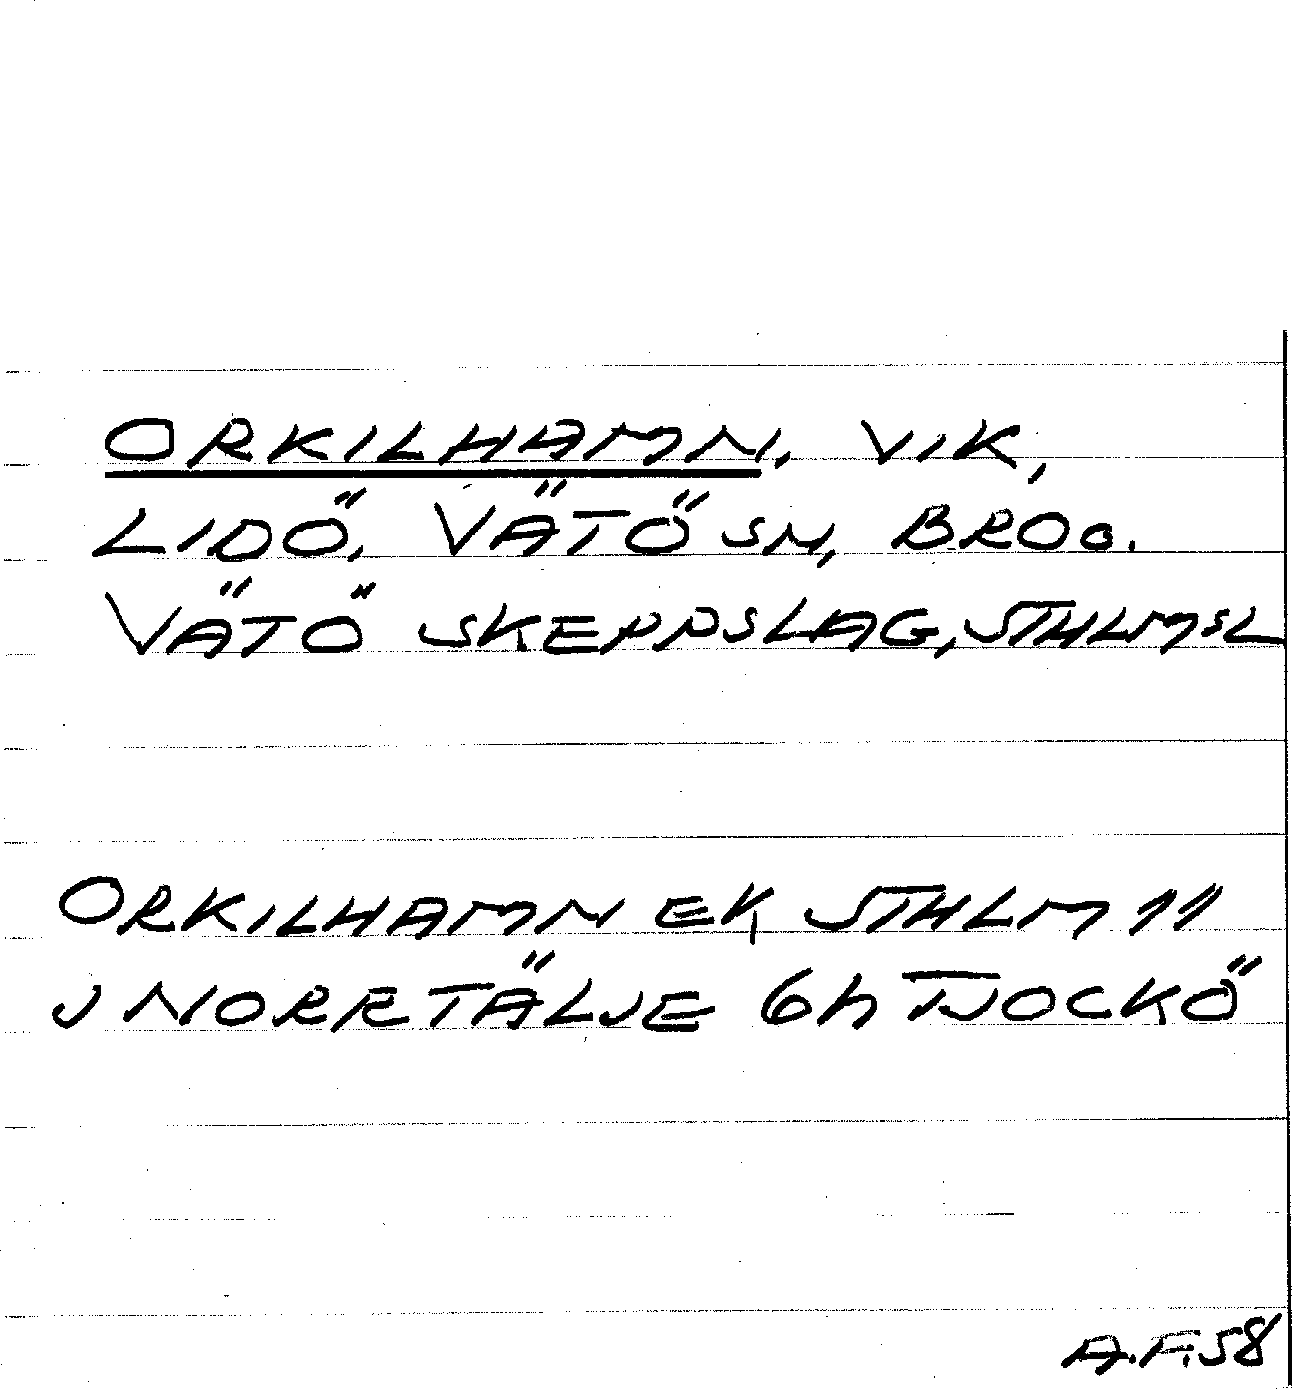 ORKILHAMN, VIK,
LIDÖ, VÄTÖ SN, BRO o.
VÄTÖ SKEPPSLAG, STHLMSL
ORKILHAMN EK, STHLM 11
J NORRTÄLJE 6h TJOCKÖ
A.F. 58